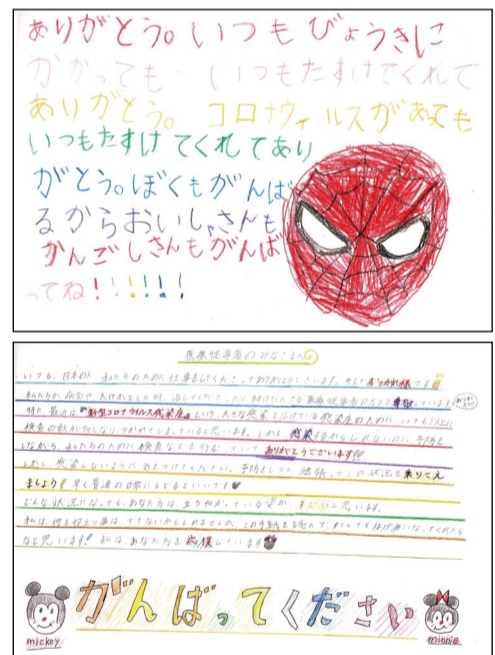 ありがとう。いつもびょうきに
かかっても いつもたすけてくれて
ありがとう。 コロナウィルスがあっても
いつもたすけてくれてあり
がとう。ぼくもがんば
るからおいしゃさんも
かんごしさんもがんば
ってね!!!!!!
医療従事者のみなさまへ
いつも、日本の人、私たちのために仕事をしてくださってありがとうございます。そしておつかれ様です
私たちが病気や大けがをした時、治してくださったり、助けてくださる医療従事者の方を尊敬しています
特に最近は"新型コロナウイルス感染症"という、大きな感染症の人のために、いつも以上に
検査の数が多くなりつかれてしまっていると思います。しかも感染するかもしれないのに、予防を
しながら、私たちのために検査などを行なっていてありがとうございます!!
しかし、感染しないようにきをつけてください。予防をしっかり この状況を乗りこえ
ましょう!!早く普通の日常にもどるといいです
どんな状況になっても、あなた方は、立ち向かっている姿が、 思います。
私は、何も役立つ事は、できないかもしれませんが、この手紙を読んで、すこしでも なってくれたら
なと思います!!私は、あなた方を応援しています
がんばってください
mickey
minnie